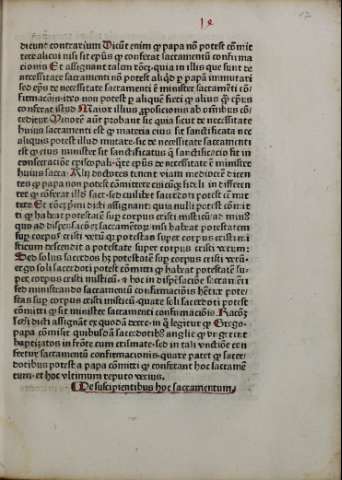 dicunt contrarium Dicūt enim ꝙ papa nō potest cōmit
tere alicui nisi sit epūs ꝙ conferat sacramentū confirma
cionis Et assignant talem rōnez. quia in illis que sunt de
necessitate sacramenti nō potest aliqd̄ ꝑ papā immutari
sed epūs de necessitate sacramenti ē minister sacramēti cō
firmacōnis. ideo non potest ꝑ aliquē fieri ꝙ alius ꝙ epūs
conferat istud Maior illius ꝓposicionis ab omnibus cō
ceditur. Minorē aūt probant sic quia sicut de necessitate
huius sacramenti est ꝙ materia eius sit sanctificata nec
aliquis potest illud mutare. sic de necessitate sacramenti
est ꝙ eius minister sit sanctificatus
consecratione episcopali. epūs de necessitate ē ministēr
huius sacra. Alij doctores tenent viam mediocrē dicen
tes ꝙ papa non potest cōmittere cuicūqz fideli indifferen
ter ꝙ conferat illd̄ sacr. sed cuilibet sacerdoti potest cōmit
tere Et rōnez dicti assignant. quia nulli potest cōmit
ti ꝙ habeat potestatē sup corpus cristi misticū. ad minꝰ
quo ad dispensacōez sacramētoꝝ. nisi habeat potestatem
sup corpus cristi verū qꝫ potestas super corpus cristi mi
sticum descendit a potestate super corpus cristi verum:
Sed solus sacerdos hꝫ potestatē sup corpus cristi verū.
ergo soli sacerdoti potest cōmitti ꝙ habeat potestatē su
per corpus cristi misticū. ⁊ hoc in dispēsacōe sacramēti
sed ministrando sacramentū confirmaciōis hētur pote
stas sup corpus cristi misticū. quare soli sacerdoti potest
cōmitti ꝙ sit minister sacramenti confirmaciōis. Racōꝫ
secūdi dicti assignāt ex quodā textu. in q̄ legitur ꝙ Grego.
papa cōmisit quibusdā sacerdotibꝰ anglie
baptizatos in frōte cum crismate. sed in tali vnctiōe con
fertur sacramentū confirmacionis. quare patet ꝙ sacer
dotibus potest a papa cōmitti ꝙ conferant hoc sacramē
tum. et hoc vltimum reputo verius.
De suscipientibus hoc sacramentum.